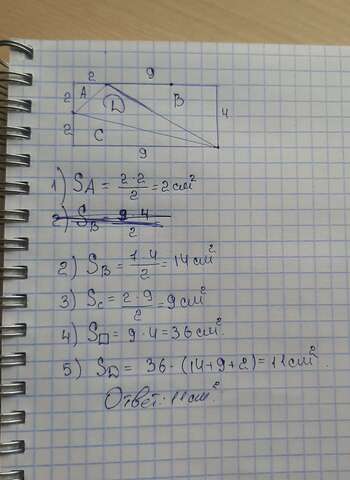 2 9
A B
2 D 4
2 C
9
1) S_A = 2·2/2 = 2 см²
2) S_B 9·4/2
2) S_B = 7·4/2 = 14 см²
3) S_C = 2·9/2 = 9 см²
4) S□ = 9·4 = 36 см².
5) S_D = 36 - (14+9+2) = 11 см².
Ответ: 11 см².